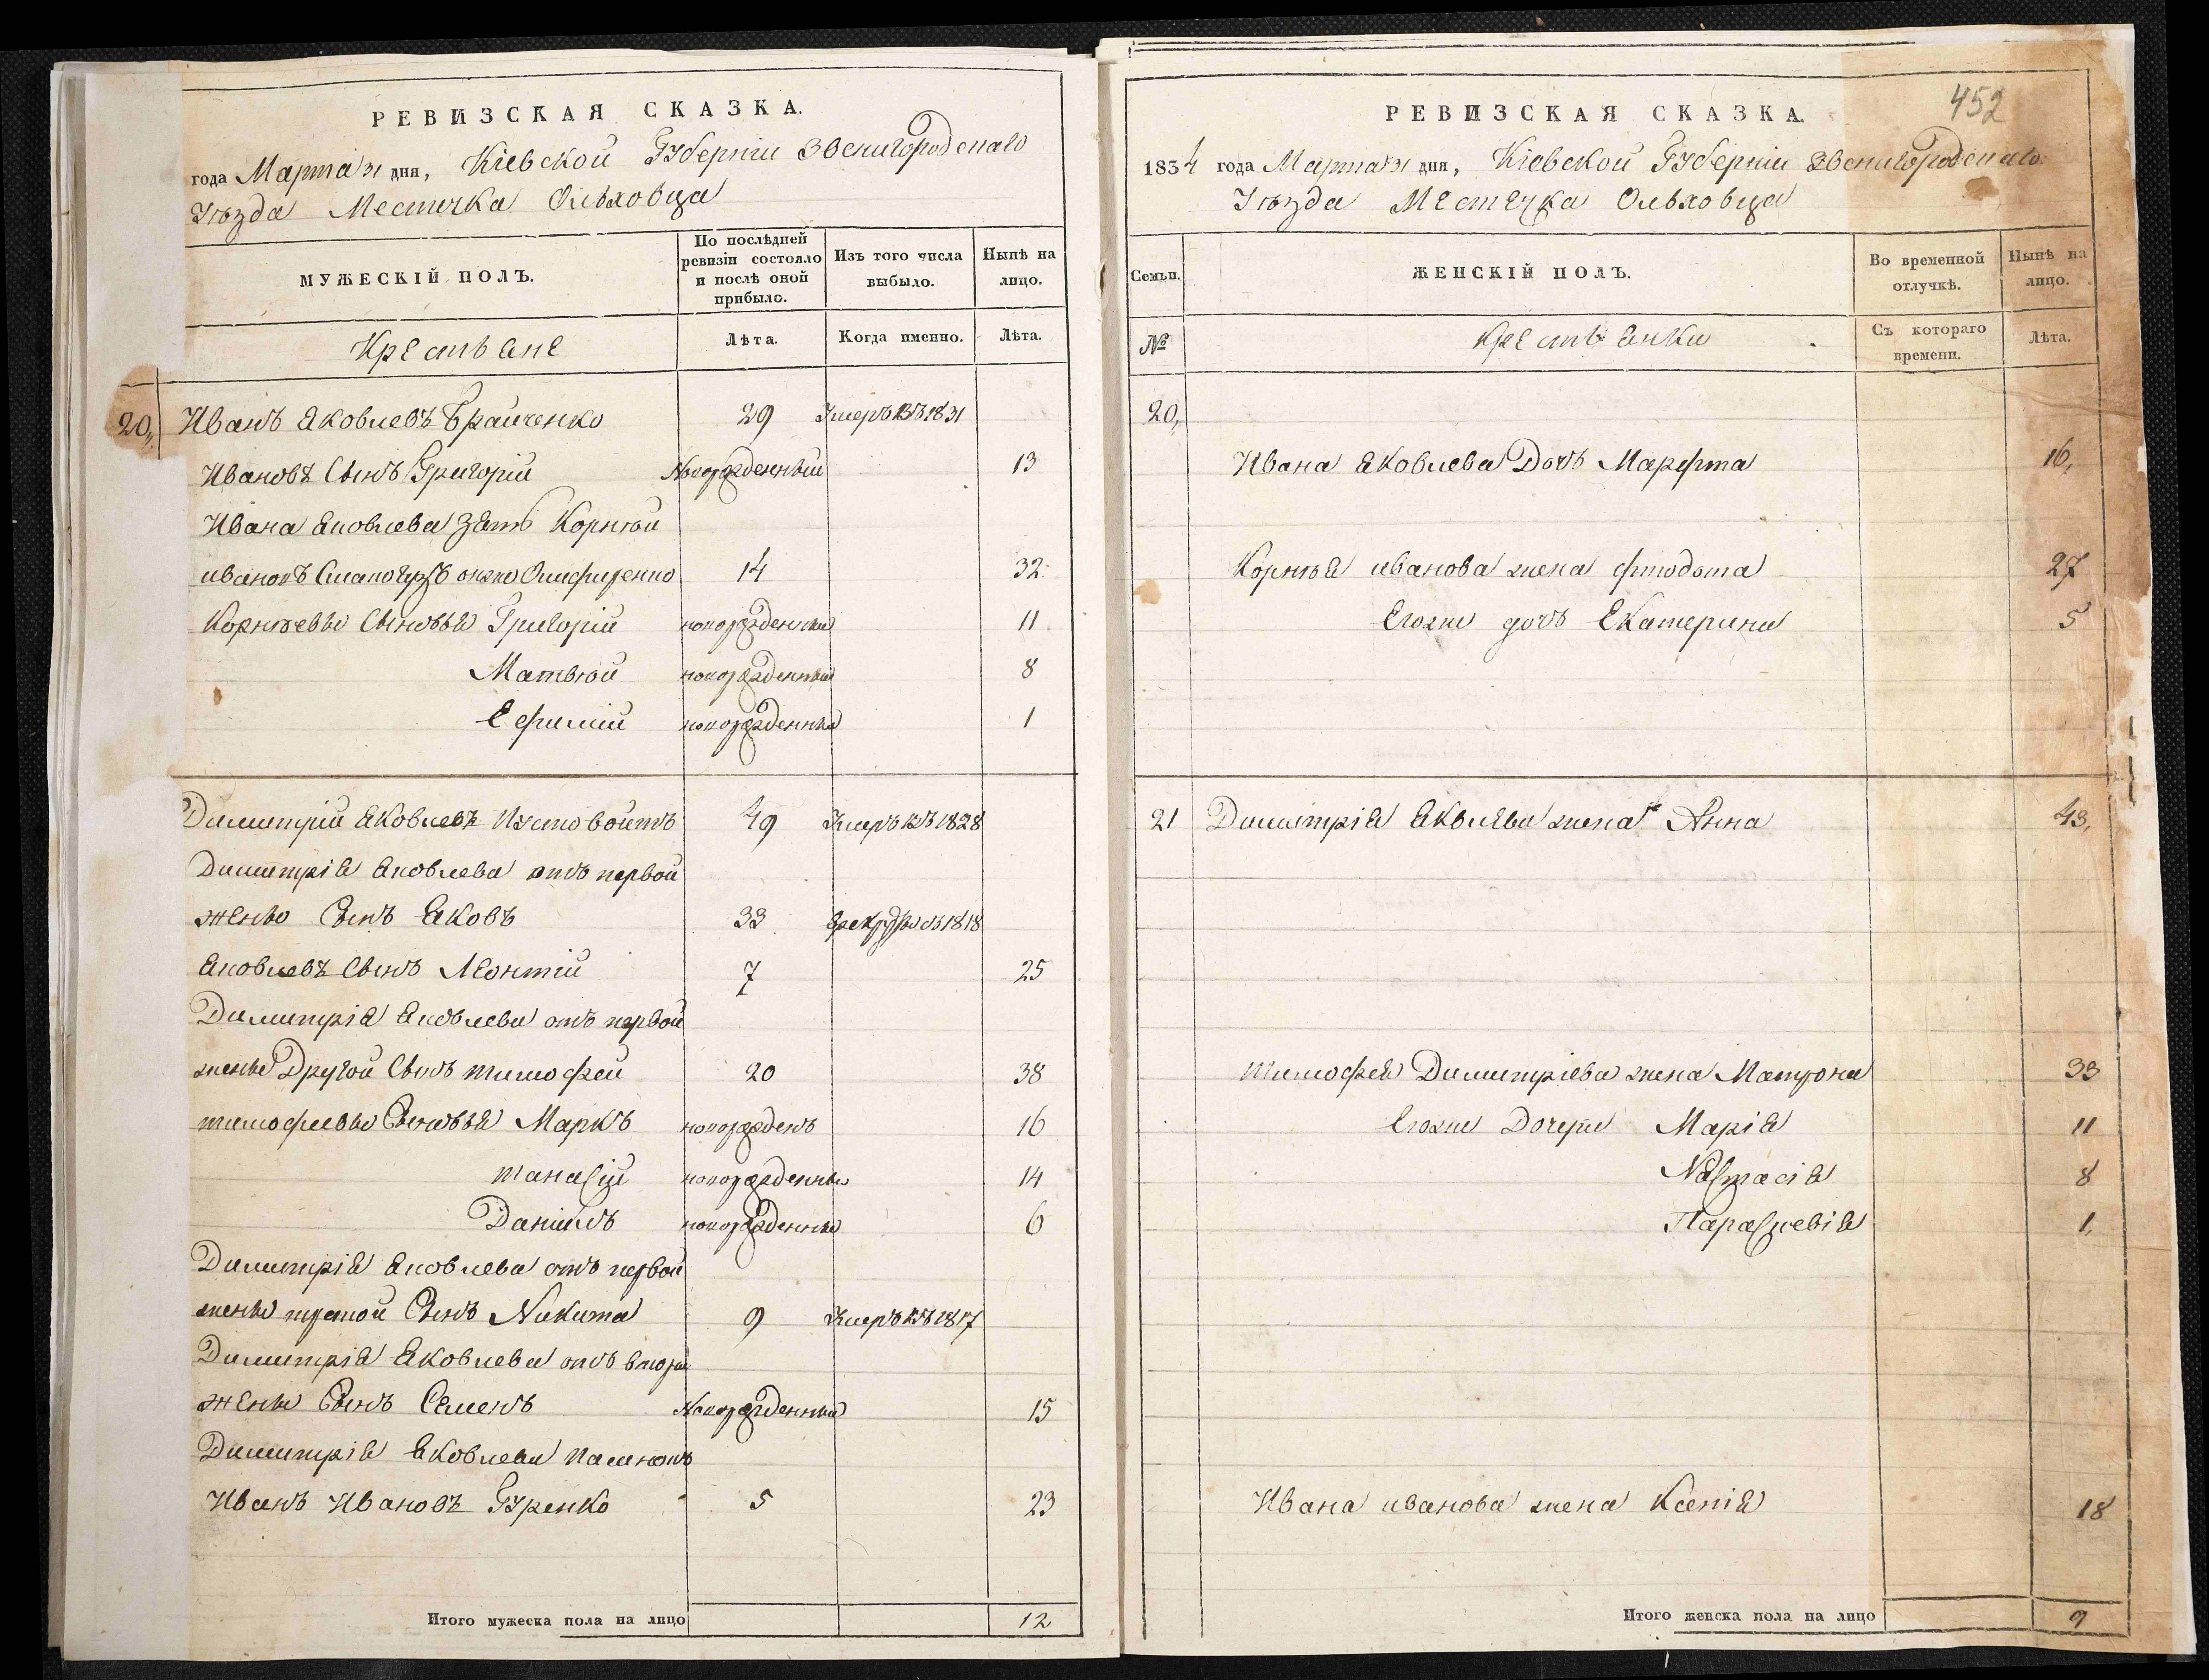 РЕВИЗСКАЯ СКАЗКА.
года Марта 31 дня, Кіевской Губерніи Звенигородскаго
Уѣзда Местечка Ольховца
МУЖЕСКІЙ ПОЛЪ.
По послѣдней ревизіи состояло и послѣ оной прибыло.
Изъ того числа выбыло.
Нынѣ на лицо.
Крестьяне
Лѣта.
Когда именно.
Лѣта.
20, Иванъ Яковлевъ Брайченко 29 Умеръ въ 1831
Ивановъ Сынъ Григорій Новорожденный 13
Ивана Яковлева Зять Корнѣй
Ивановъ онже Олифиренко 14 32
Корнѣевы Сыновья Григорій новорожденный 11
Матвѣй новорожденный 8
Ефимій новорожденный 1
Димитрій Яковлевъ Пустовойтъ 49 Умеръ въ 1828
Димитрія Яковлева отъ первой
жены Сынъ Яковъ 33 1818
Яковлевъ Сынъ Леонтій 7 25
Димитрія Яковлева отъ первой
жены Другой Сынъ Тимофей 20 38
Тимофеевы Сыновья Маркъ новорожденъ 16
Танасій новорожденный 14
Даніилъ новорожденный 6
Димитрія Яковлева отъ первой
жены третой Сынъ Никита 9 Умеръ въ 1817
Димитрія Яковлева отъ второй
жены Сынъ Семенъ Новорожденный 15
Димитрія Яковлева
Иванъ Ивановъ Гуренко 5 23
Итого мужеска пола на лицо 12
452
РЕВИЗСКАЯ СКАЗКА.
1834 года Марта 31 дня, Кіевской Губерніи Звенигородскаго
Уѣзда Местечка Ольховца
Семьи.
ЖЕНСКІЙ ПОЛЪ.
Во временной отлучкѣ.
Нынѣ на лицо.
№
Крестьянки
Съ котораго времени.
Лѣта.
20,
Ивана Яковлева Дочь Марфта 16,
Корнѣя Иванова жена Фтодота 27
Егоже дочь Екатерина 5
21 Димитрія Яковлева жена Анна 43,
Тимофея Димитріева жена Матрона 33
Егоже Дочери Марія 11
Настасія 8
Параскевія 1,
Ивана Иванова жена Ксенія 18
Итого женска пола на лицо 9